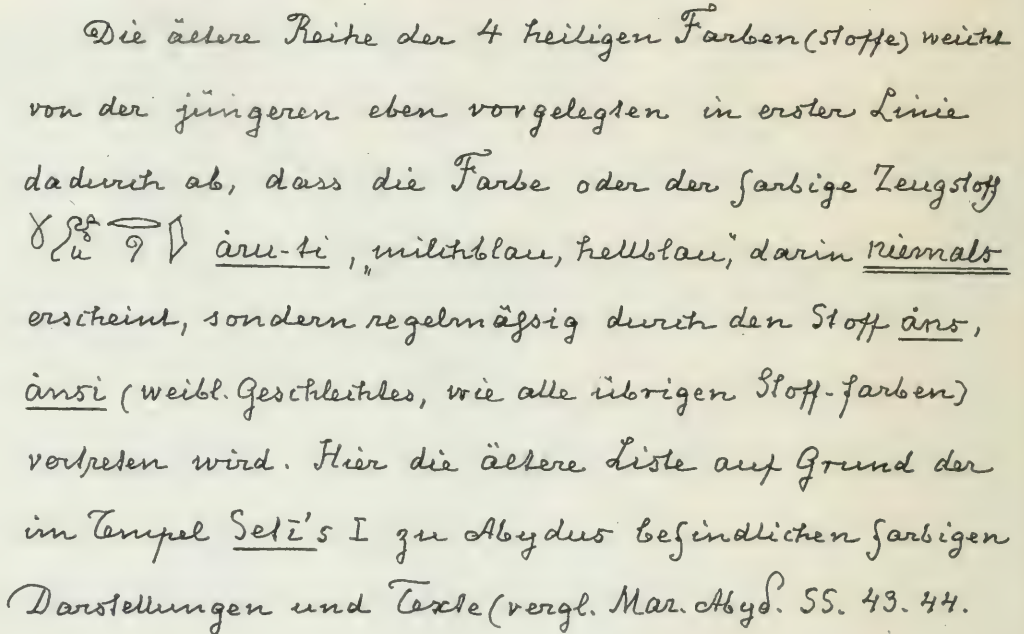 Die ältere Reihe der 4 heiligen Farben (stoffe) weicht
von der jüngeren eben vorgelegten in erster Linie
dadurch ab, dass die Farbe oder der farbige Zeugstoff
áru-ti, „milchblau, hellblau,“ darin niemals
erscheint, sondern regelmäßig durch den Stoff áns,
ánsi (weibl. Geschlechtes, wie alle übrigen Stoff-farben)
vertreten wird. Hier die ältere Liste auf Grund der
im Tempel Seti's I zu Abydus befindlichen farbigen
Darstellungen und Texte (vergl. Mar. Abyd. SS. 43. 44.